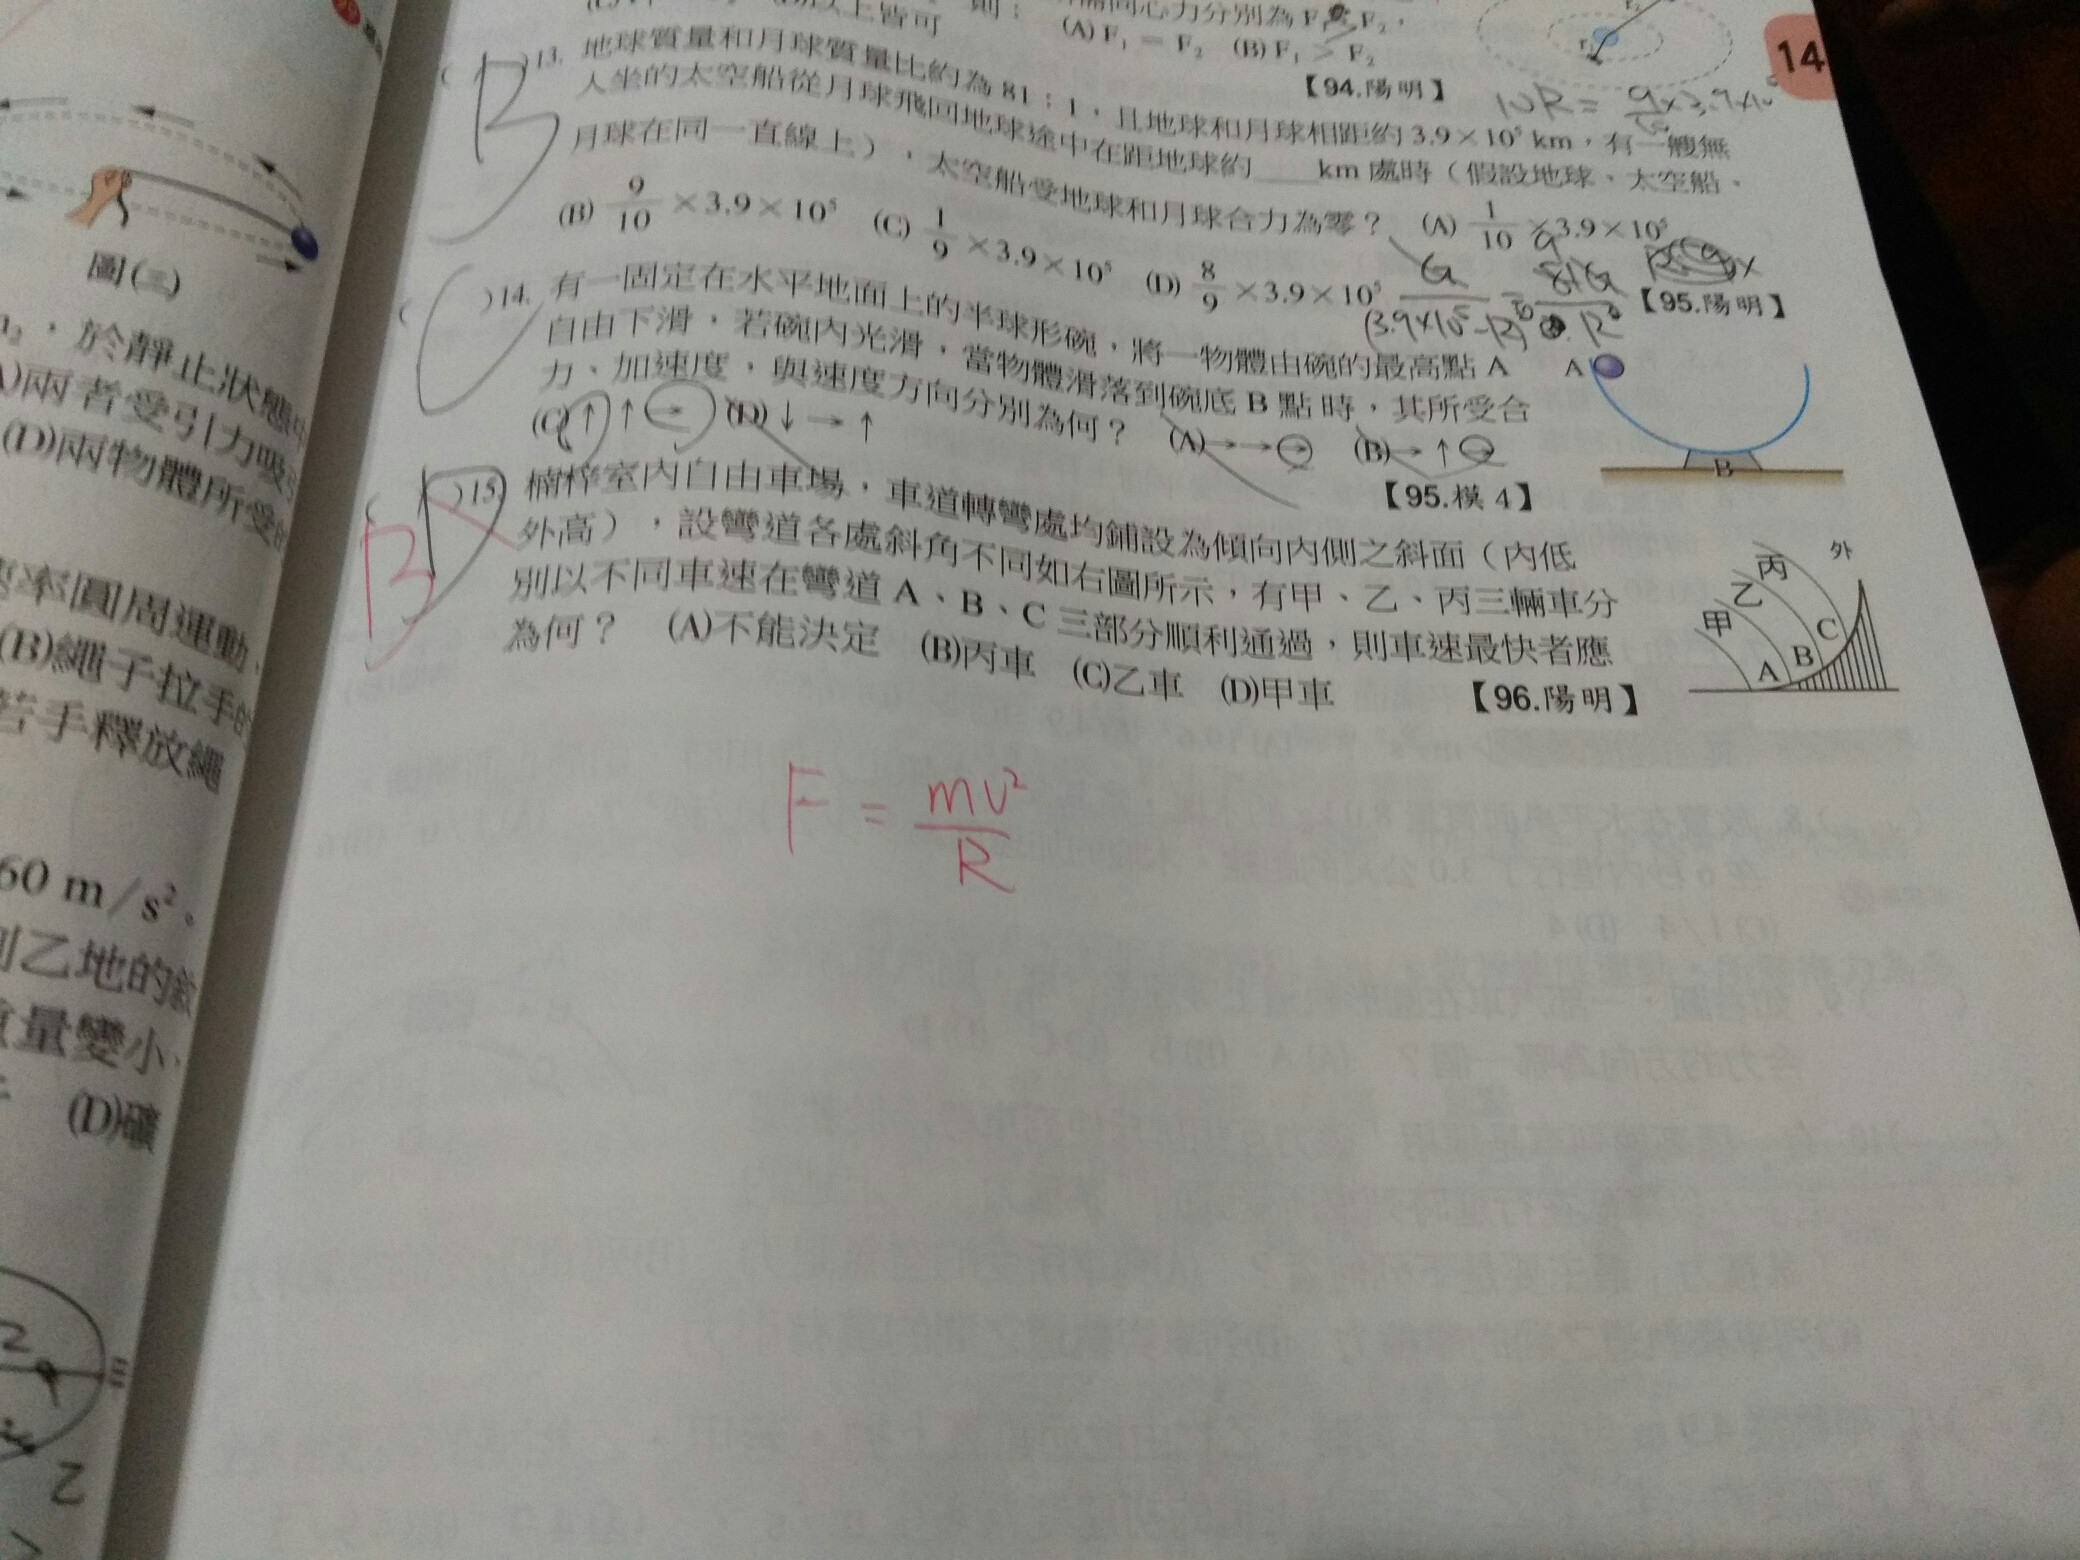 圖(三)
，於靜止狀態
兩者受引力吸
(D)兩物體所受
率圓周運動，
(B)繩子拉手的
若手釋放繩
60 m/s²。
乙地的敘
量變小，
(D)礦
乙
14
以上皆可
則：
(A) F₁ = F₂ (B) F₁ > F₂
【94.陽明】
B
)13. 地球質量和月球質量比約為 81：1，且地球和月球相距約 3.9×10⁵ km，有一艘無
人坐的太空船從月球飛回地球途中在距地球約____km 處時（假設地球、太空船、
月球在同一直線上），太空船受地球和月球合力為零？ (A) 1/10 ×3.9×10⁵
(B) 9/10 ×3.9×10⁵ (C) 1/9 ×3.9×10⁵ (D) 8/9 ×3.9×10⁵
【95.陽明】
C
)14. 有一固定在水平地面上的半球形碗，將一物體由碗的最高點 A
自由下滑，若碗內光滑，當物體滑落到碗底 B 點時，其所受合
力、加速度，與速度方向分別為何？ (A)→→→ (B)→↑→
(C)↑↑→ (D)↓→↑
【95.模 4】
A
B
B D
)15. 楠梓室內自由車場，車道轉彎處均鋪設為傾向內側之斜面（內低
外高），設彎道各處斜角不同如右圖所示，有甲、乙、丙三輛車分
別以不同車速在彎道 A、B、C 三部分順利通過，則車速最快者應
為何？ (A)不能決定 (B)丙車 (C)乙車 (D)甲車
【96.陽明】
外
丙
乙
甲
C
B
A
F = mv²/R